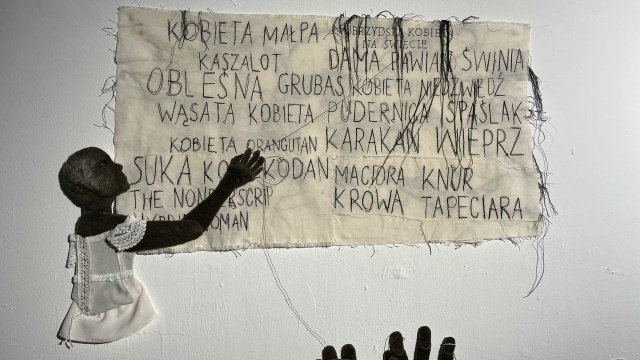 KOBIETA MAŁPA
KOBIET
NA ŚWIECIE
KASZALOT DAMA PAWIAN ŚWINIA
OBLEŚNA GRUBAS KOBIETA NIEDŹWIEDŹ
WĄSATA KOBIETA PUDERNICA SPAŚLAK
KOBIETA ORANGUTAN KARAKAN WIEPRZ
SUKA KODAN MACIORA KNUR
THE KROWA TAPECIARA
WOMAN